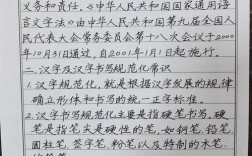 义务和责任。《中华人民共和国国家通用语
言文字法》由中华人民共和国第九届全国人
民代表大会常务委员会第十八次会议于2000
年10月31日通过,自2001年1月1日起施行。
二、汉字及汉字书写规范化常识
1.汉字规范化,就是根据汉字发展的规律
确立形体和书写的统一正字标准。
2.汉字书写规范化主要是指硬笔书写。硬
笔是指笔尖是硬性的笔,如钢笔、铅笔、
圆柱笔、签字笔、粉笔以及特制的木笔、